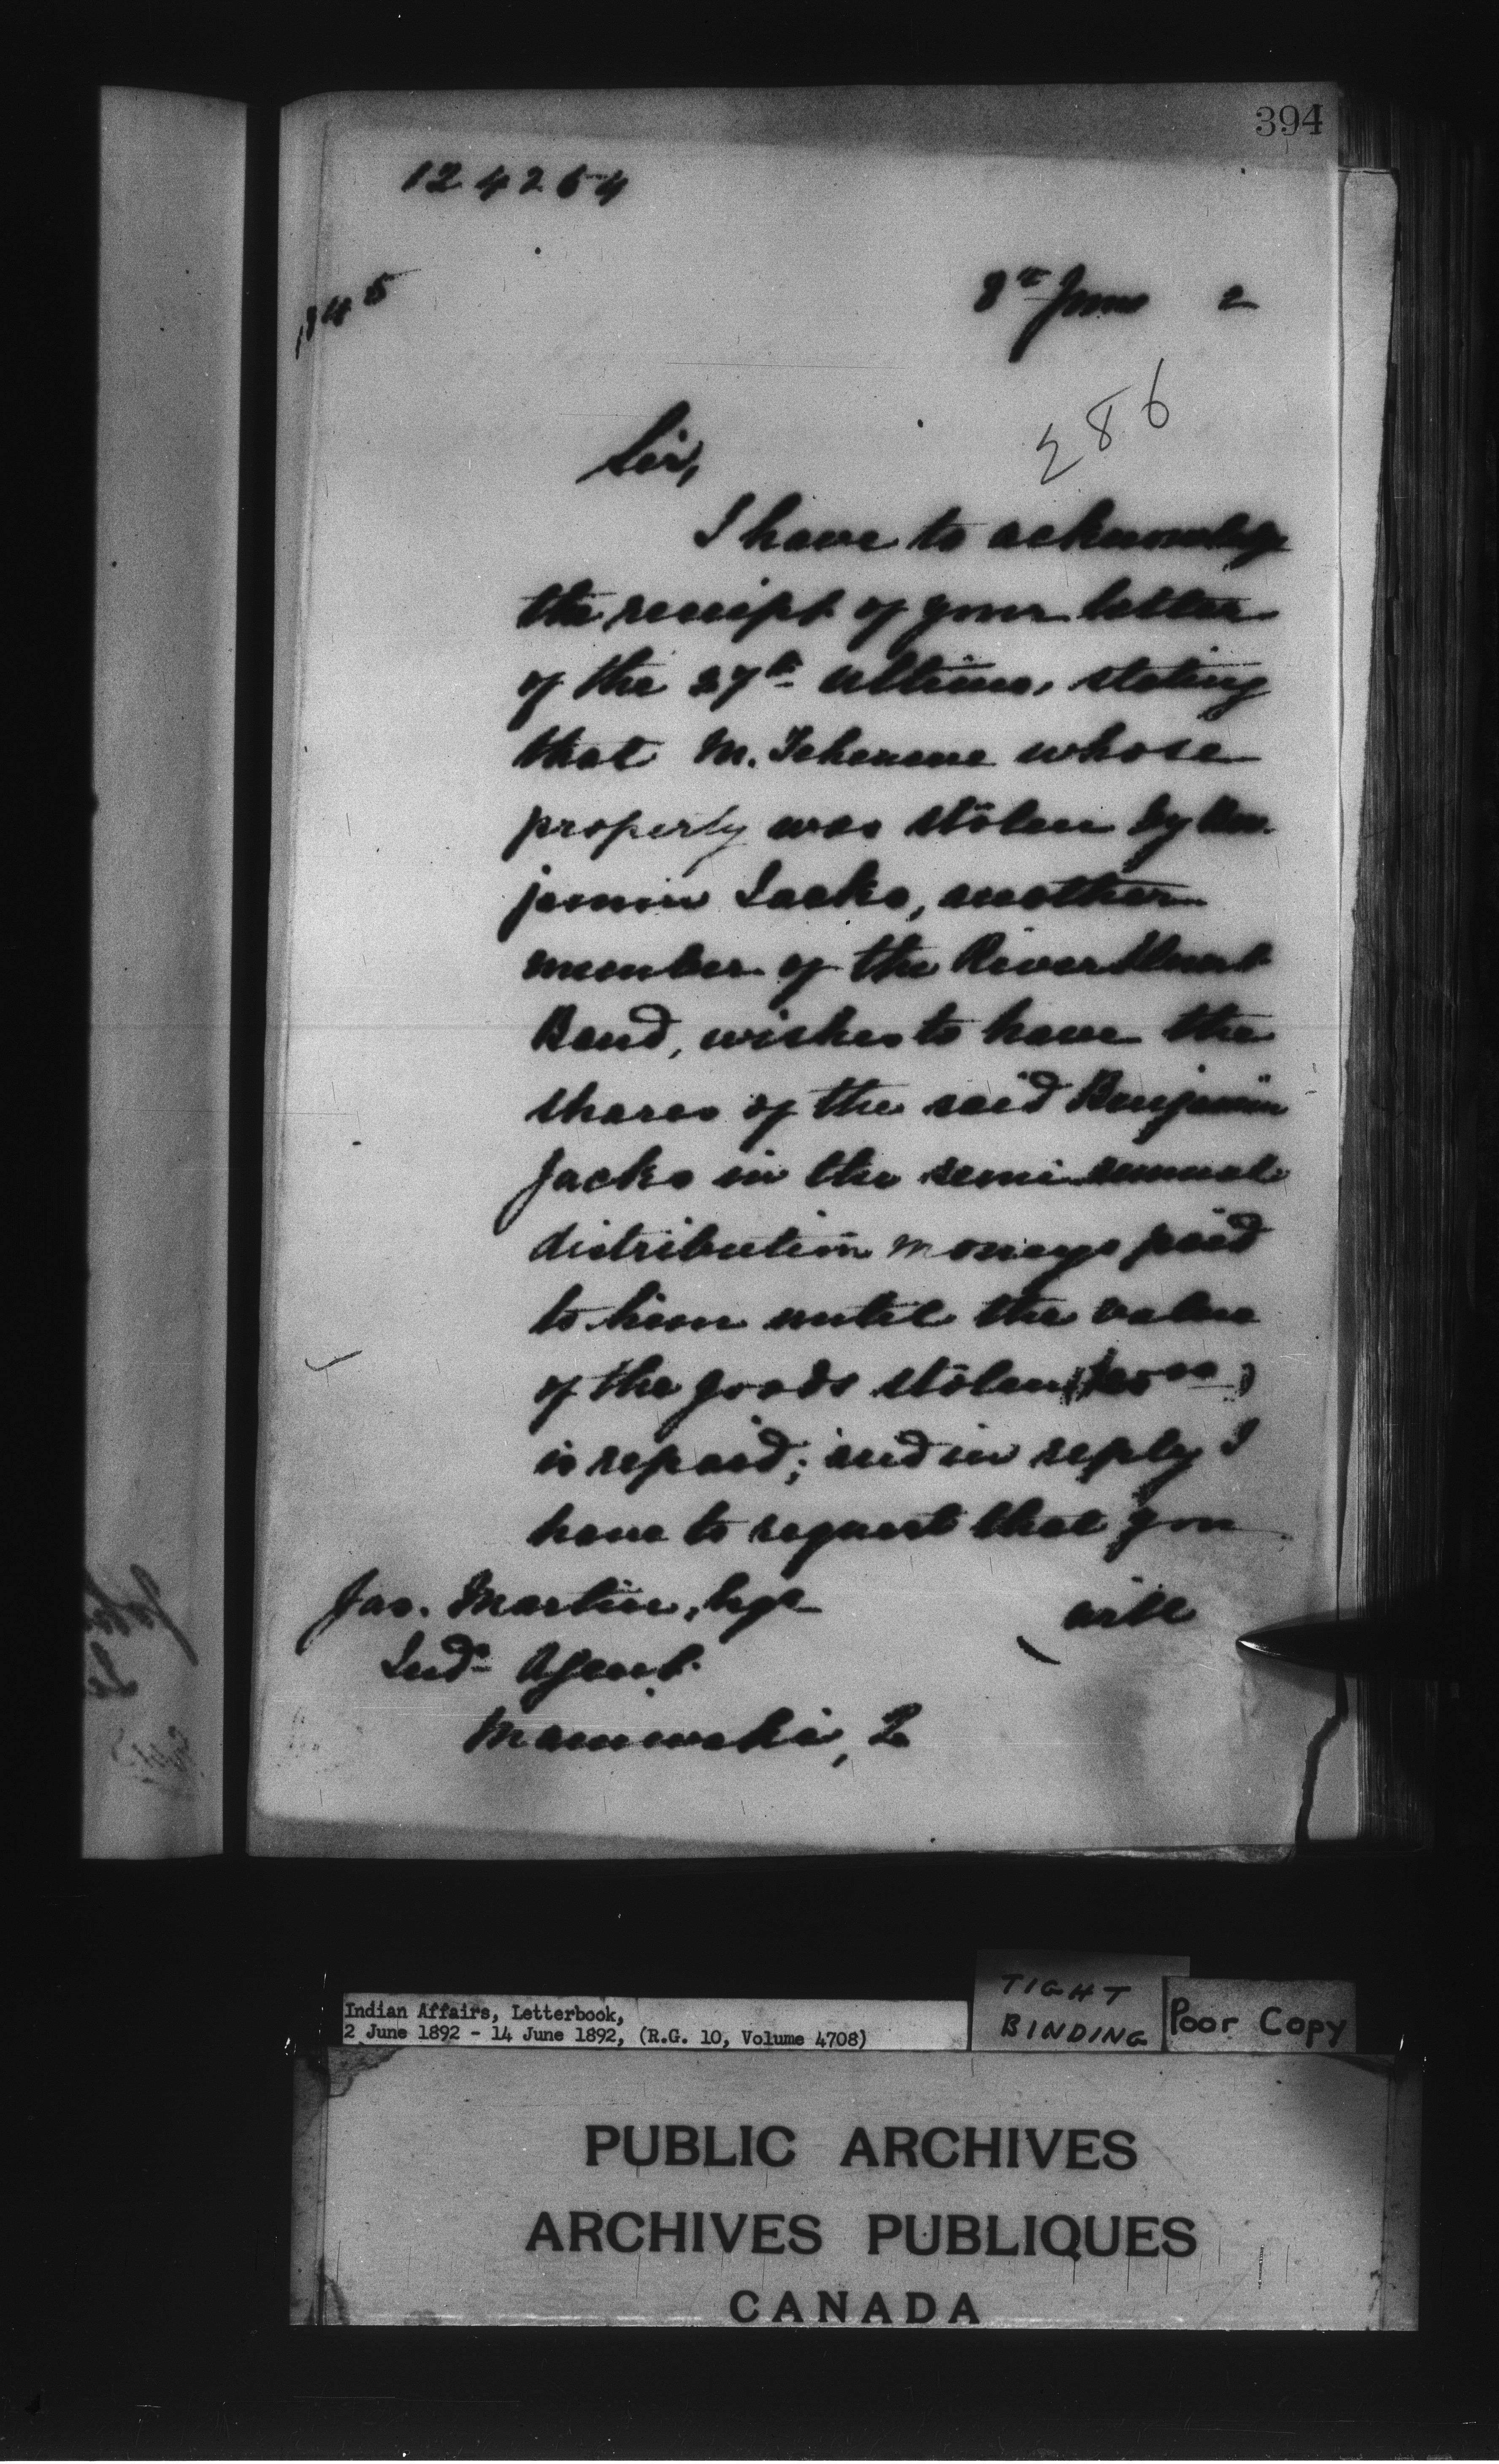 394
124264
1345
8th June 2
286
Sir,
I have to acknowledge
the receipt of your letter
of the 27th ultimo, stating
that M. whose
property was stolen by Ben-
jamin Jacko, another
member of the River Desert
Band, wishes to have the
shares of the said Benjamin
Jacko in the semi annual
distribution moneys paid
to him until the value
of the goods stolen
is repaid; and in reply I
have to request that you
will
Jas. Martin, Esqr
Indn Agent
Maniwaki, Q
Indian Affairs, Letterbook,
2 June 1892 - 14 June 1892, (R.G. 10, Volume 4708)
TIGHT
BINDING
Poor Copy
PUBLIC ARCHIVES
ARCHIVES PUBLIQUES
CANADA